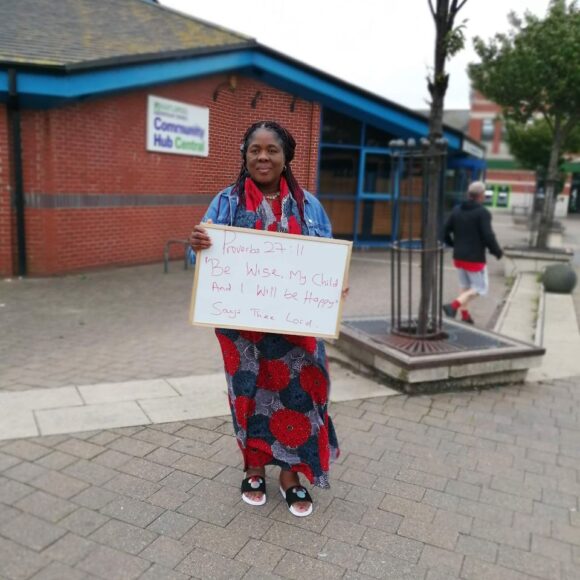 Community
Hub Central
Proverbs 27:11
"Be Wise, My Child
And I Will be Happy"
Says Thee Lord.